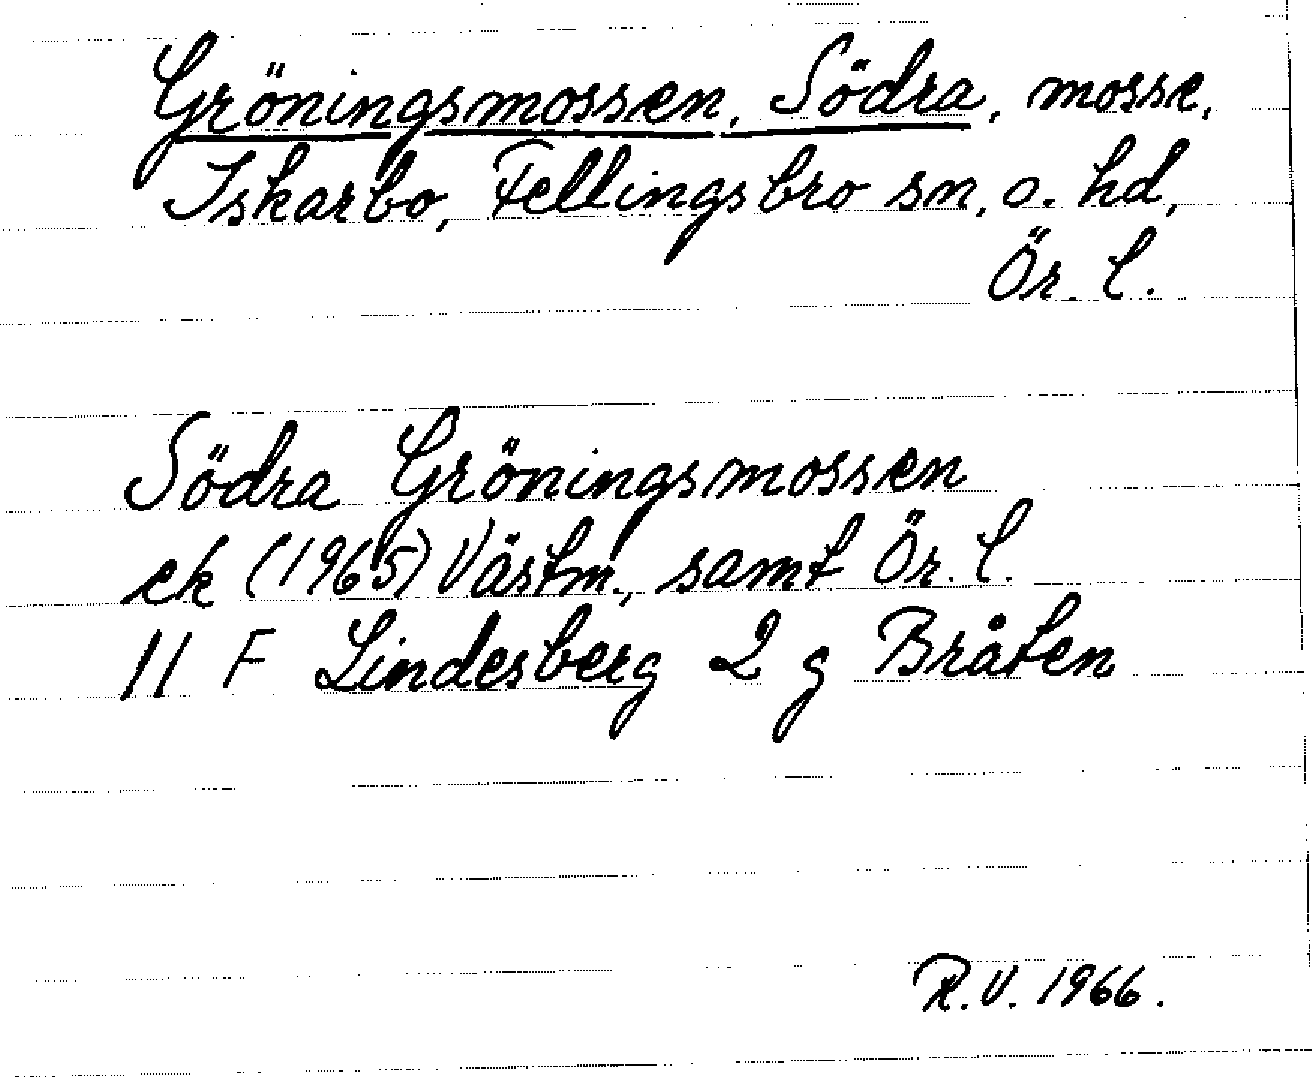 Gröningsmossen, Södra, mosse,
Iskarbo, Fellingsbro sn, o. hd,
Ör. l.
Södra Gröningsmossen
ek (1965) Västm., samt Ör. l.
11 F Lindesberg 2 g Bråten
R.V. 1966.